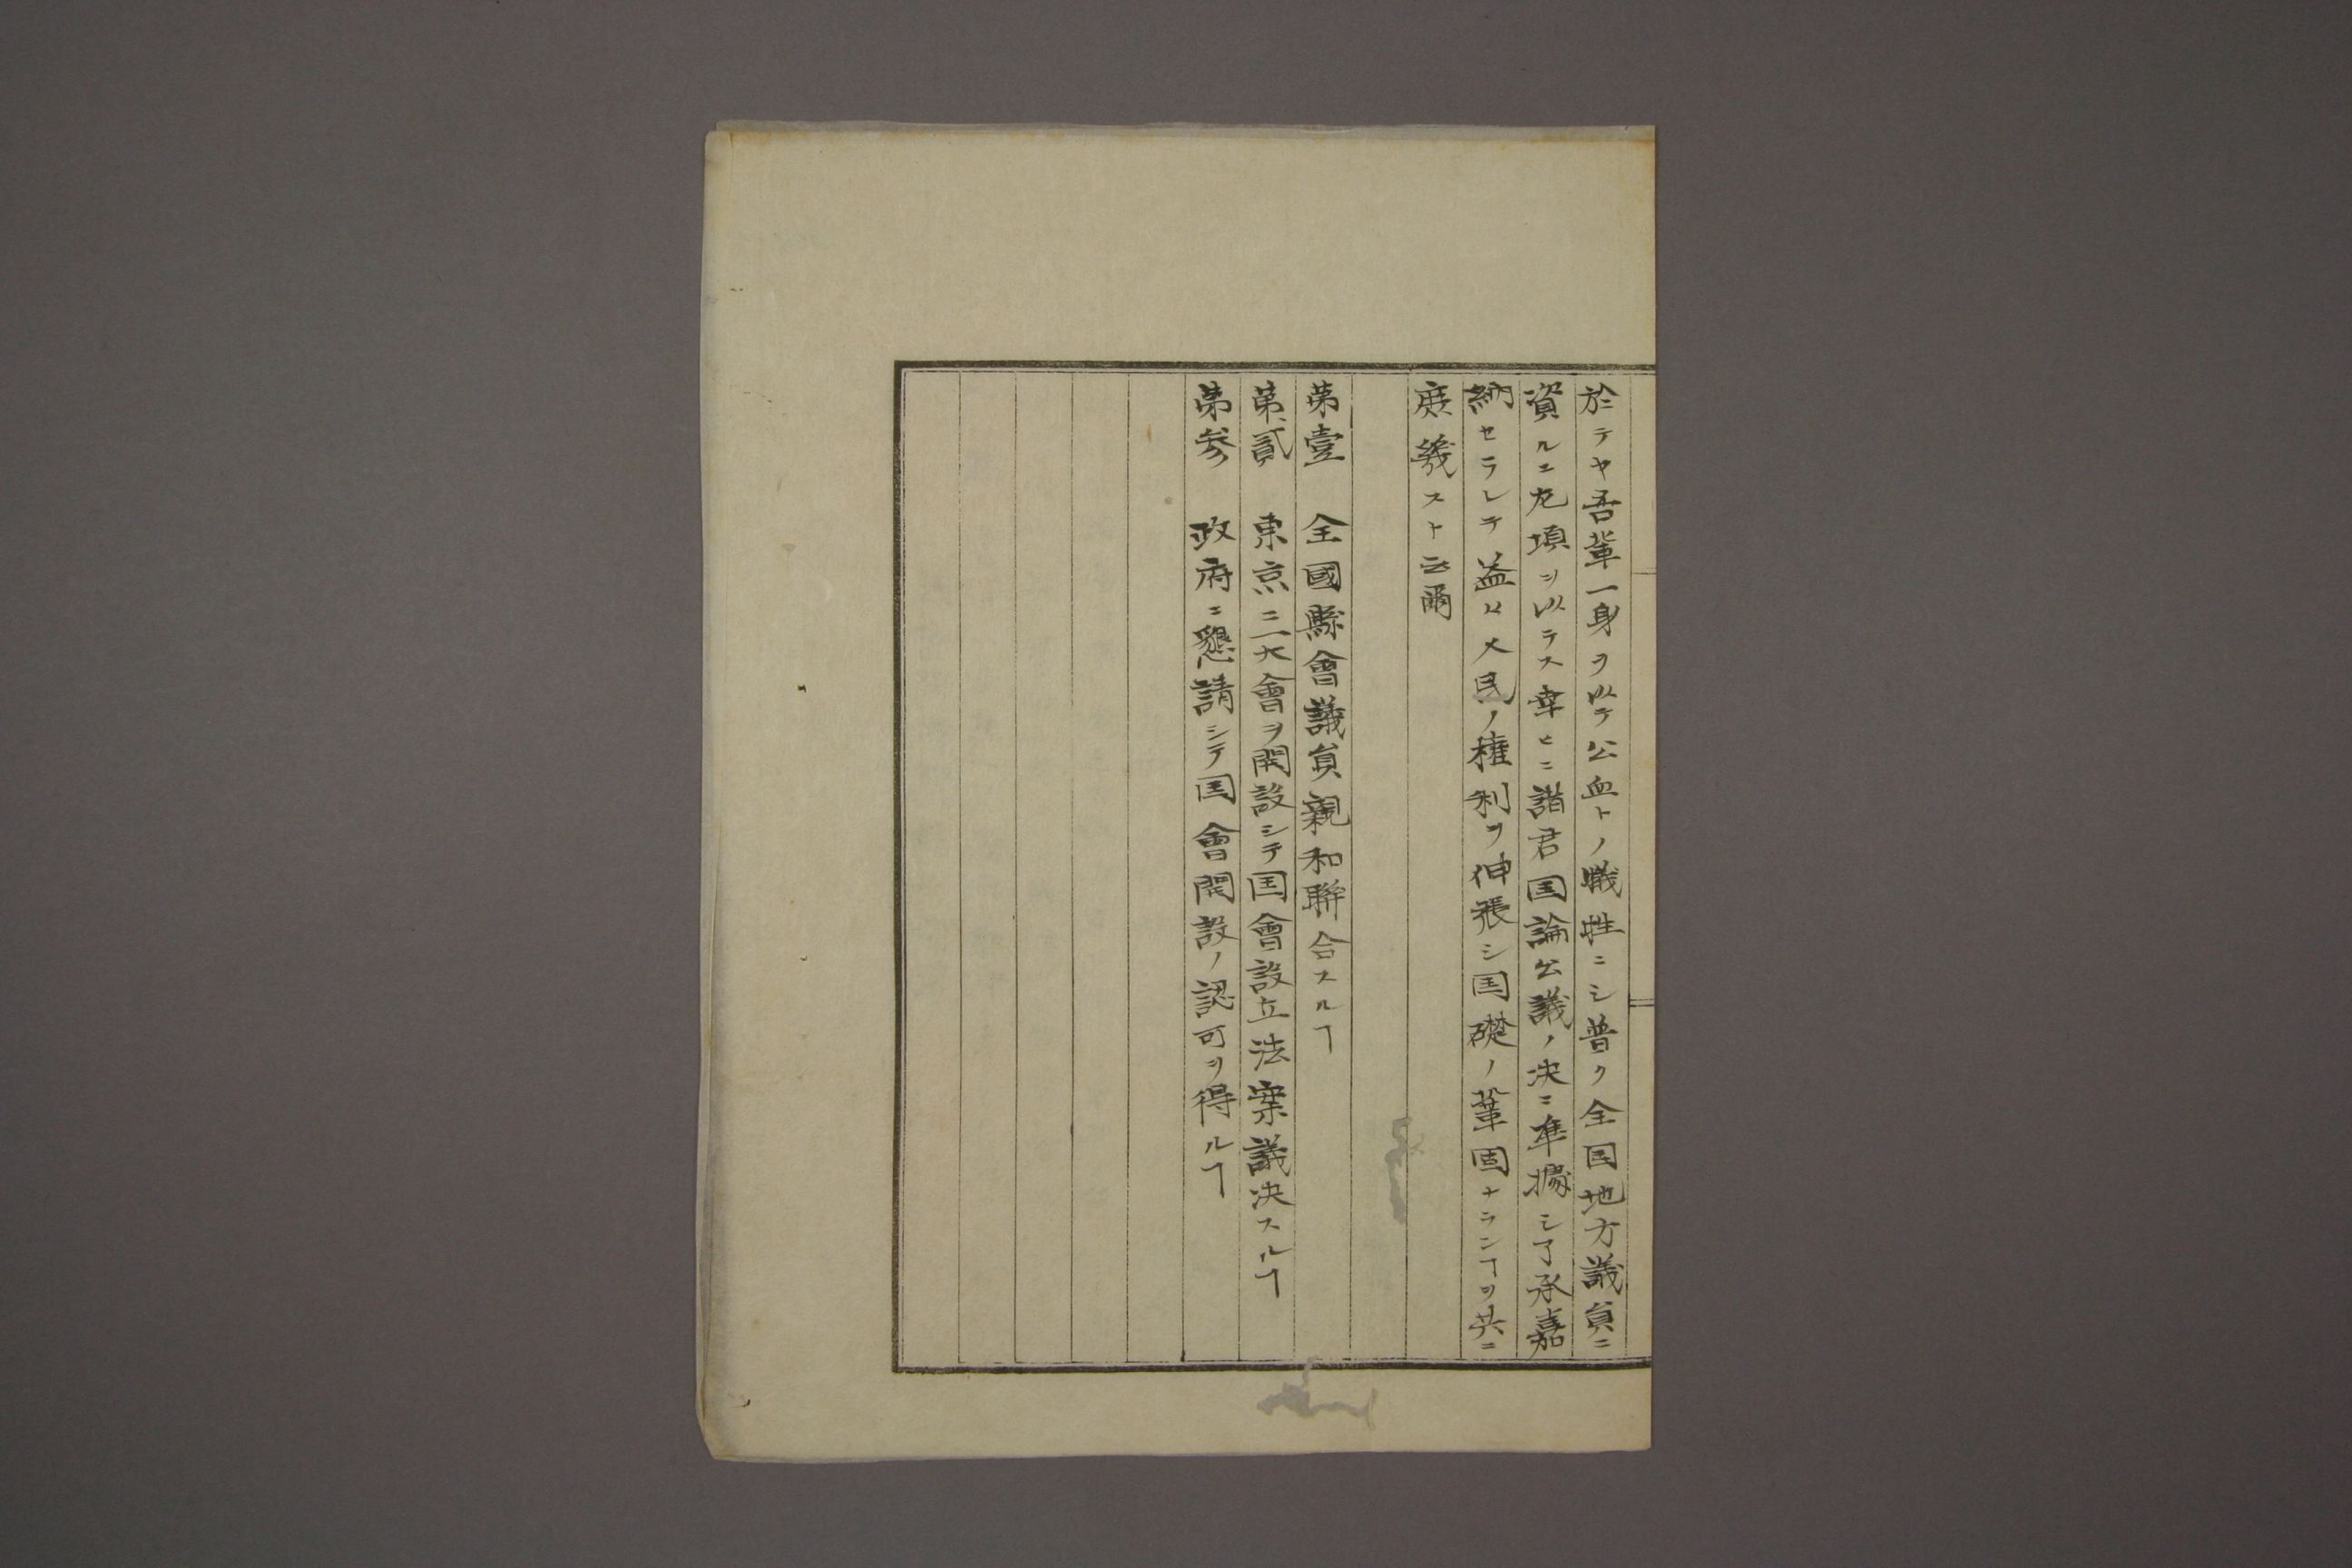 於テヤ吾輩一身ヲ以テ公血トノ犠牲ニシ普ク全国地方議員ニ
資ルニ左項ヲ以テス幸ヒニ諸君国論公議ノ决ニ凖據シ了承嘉
納セラレテ益〻人民ノ権利ヲ伸張シ国礎ノ鞏固ナランヿヲ共ニ
庶幾スト云爾
第壹 全國縣會議員親和聯合スルヿ
第貳 東京ニ一大會ヲ開設シテ国會設立法案議决スルヿ
第参 政府ニ懇請シテ国會開設ノ認可ヲ得ルヿ